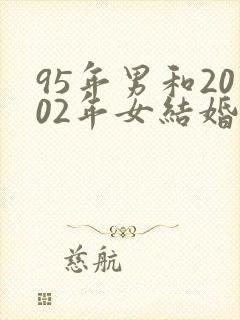 95年男和20
02年女結婚
慈航